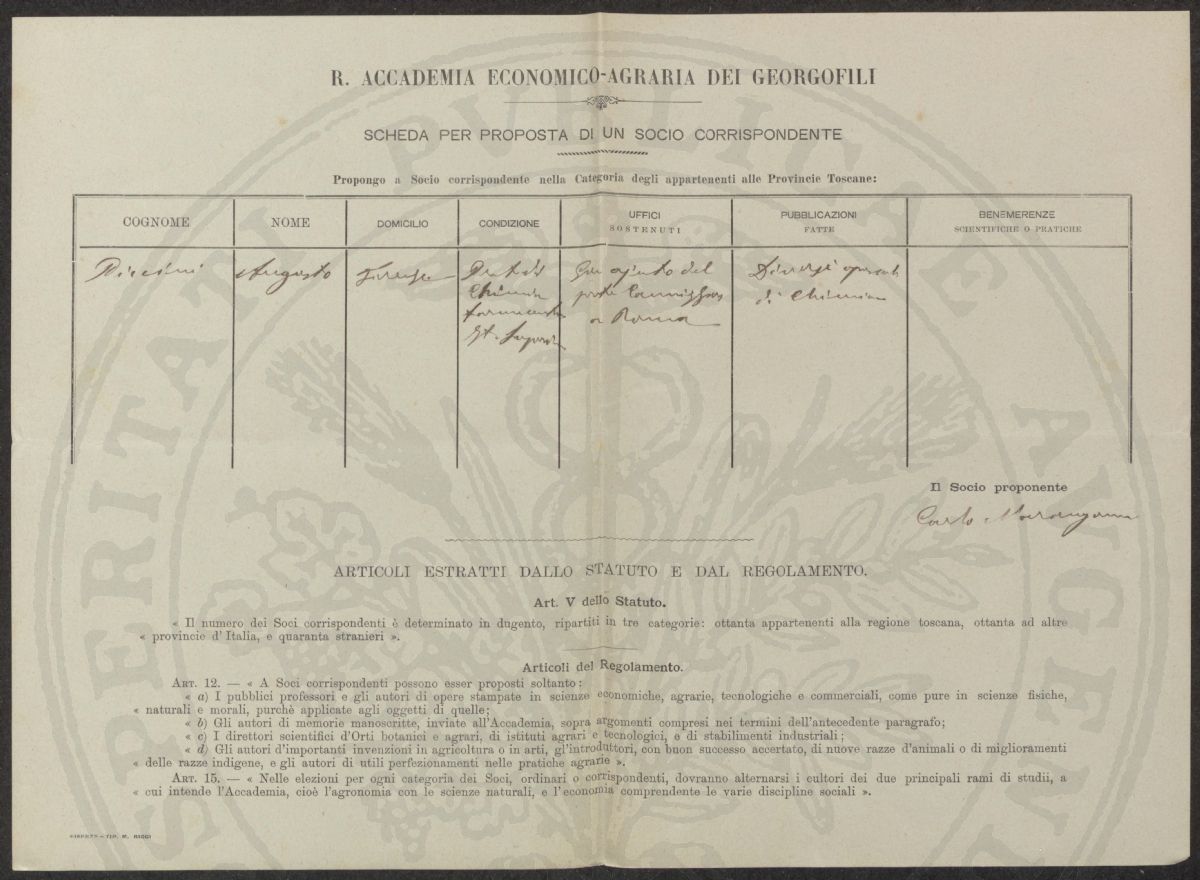 R. ACCADEMIA ECONOMICO-AGRARIA DEI GEORGOFILI
SCHEDA PER PROPOSTA DI UN SOCIO CORRISPONDENTE
Propongo a Socio corrispondente nella Categoria degli appartenenti alle Provincie Toscane:
COGNOME
NOME
DOMICILIO
CONDIZIONE
UFFICI
SOSTENUTI
PUBBLICAZIONI
FATTE
BENEMERENZE
SCIENTIFICHE O PRATICHE
Piccini
Augusto
Firenze
Prof. di
Chimica
St. Super
Già ajuto del
prof. Cannizzaro
a Roma
Diversi opuscoli
di Chimica
Il Socio proponente
Carlo Marangoni
ARTICOLI ESTRATTI DALLO STATUTO E DAL REGOLAMENTO.
Art. V dello Statuto.
« Il numero dei Soci corrispondenti è determinato in dugento, ripartiti in tre categorie: ottanta appartenenti alla regione toscana, ottanta ad altre
« provincie d'Italia, e quaranta stranieri ».
Articoli del Regolamento.
ART. 12. — « A Soci corrispondenti possono esser proposti soltanto:
« a) I pubblici professori e gli autori di opere stampate in scienze economiche, agrarie, tecnologiche e commerciali, come pure in scienze fisiche,
« naturali e morali, purchè applicate agli oggetti di quelle;
« b) Gli autori di memorie manoscritte, inviate all'Accademia, sopra argomenti compresi nei termini dell'antecedente paragrafo;
« c) I direttori scientifici d'Orti botanici e agrari, di istituti agrari e tecnologici, e di stabilimenti industriali;
« d) Gli autori d'importanti invenzioni in agricoltura o in arti, gl'introduttori, con buon successo accertato, di nuove razze d'animali o di miglioramenti
« delle razze indigene, e gli autori di utili perfezionamenti nelle pratiche agrarie ».
ART. 15. — « Nelle elezioni per ogni categoria dei Soci, ordinari o corrispondenti, dovranno alternarsi i cultori dei due principali rami di studii, a
« cui intende l'Accademia, cioè l'agronomia con le scienze naturali, e l'economia comprendente le varie discipline sociali ».
FIRENZE - TIP. M. RICCI